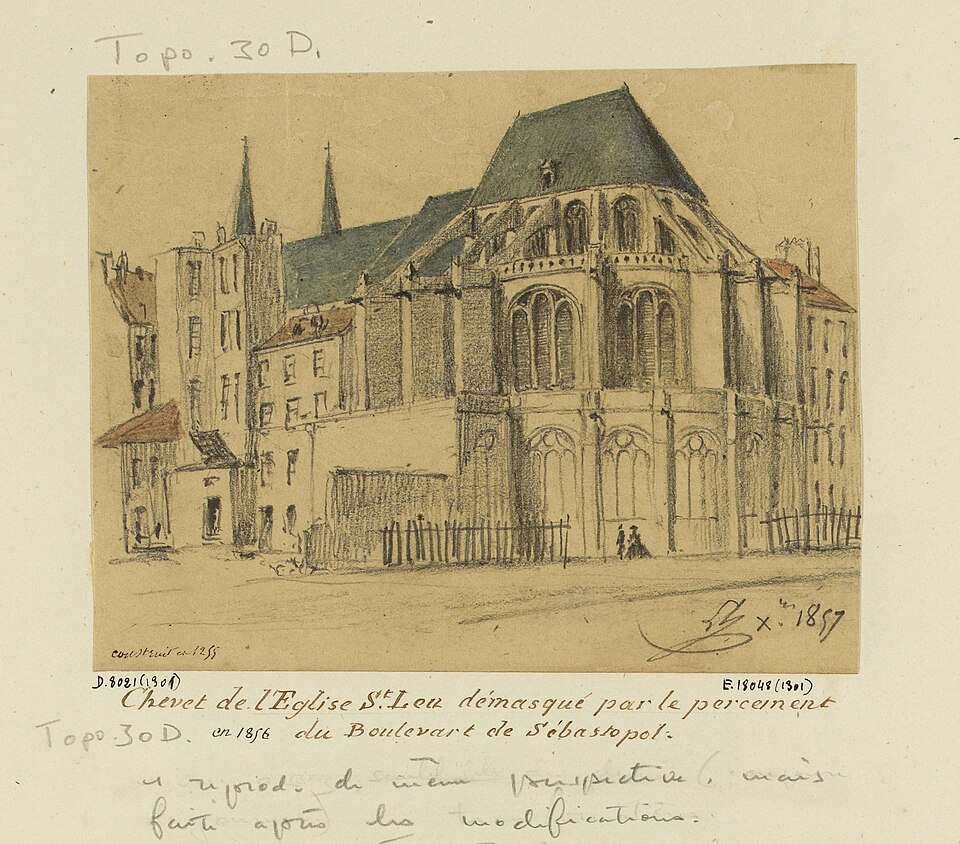 Topo. 30 D.
X.bre 1857
construit en 1255
D.8021(1301)
E.18048(1301)
Chevet de l'Eglise St. Leu démasqué par le percement
Topo 30 D. en 1856 du Boulevart de Sébastopol.
reprod. de même perspective, mais
faite après les modifications.